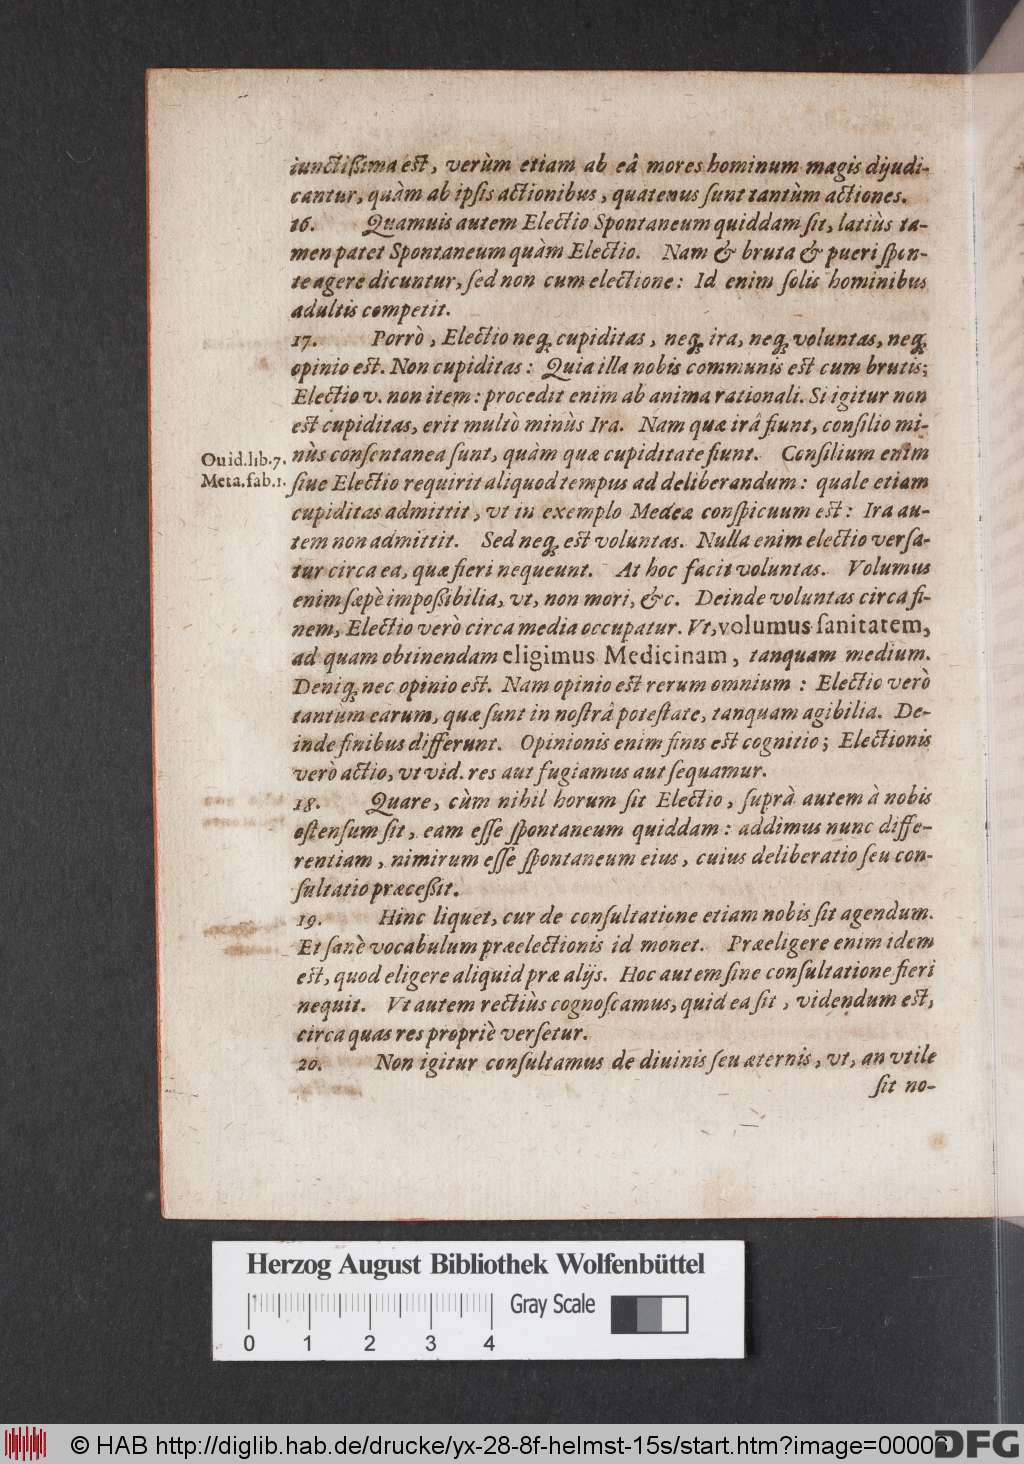 iunctißima est, verùm etiam ab eâ mores hominum magis dijudi-
cantur, quàm ab ipsis actionibus, quatenus sunt tantùm actiones.
16. Quamuis autem Electio Spontaneum quiddam sit, latiùs ta-
men patet Spontaneum quàm Electio. Nam & bruta & pueri spon-
te agere dicuntur, sed non cum electione: Id enim solis hominibus
adultis competit.
17. Porrò, Electio neq; cupiditas, neq; ira, neq; voluntas, neq;
opinio est. Non cupiditas: Quia illa nobis communis est cum brutis;
Electio v. non item: procedit enim ab anima rationali. Si igitur non
est cupiditas, erit multò minùs Ira. Nam quæ irâ fiunt, consilio mi-
Ouid.lib.7.
Meta.fab.1.
nùs consentanea sunt, quàm quæ cupiditate fiunt. Consilium enim
siue Electio requirit aliquod tempus ad deliberandum: quale etiam
cupiditas admittit, vt in exemplo Medeæ conspicuum est: Ira au-
tem non admittit. Sed neq; est voluntas. Nulla enim electio versa-
tur circa ea, quæ fieri nequeunt. At hoc facit voluntas. Volumus
enim sæpè impoßibilia, vt, non mori, &c. Deinde voluntas circa fi-
nem, Electio verò circa media occupatur. Vt, volumus sanitatem,
ad quam obtinendam eligimus Medicinam, tanquam medium.
Deniq; nec opinio est. Nam opinio est rerum omnium: Electio verò
tantum earum, quæ sunt in nostrâ potestate, tanquam agibilia. De-
inde finibus differunt. Opinionis enim finis est cognitio; Electionis
verò actio, vt vid. res aut fugiamus aut sequamur.
18. Quare, cùm nihil horum sit Electio, suprà autem à nobis
ostensum sit, eam esse spontaneum quiddam: addimus nunc diffe-
rentiam, nimirum esse spontaneum eius, cuius deliberatio seu con-
sultatio præceßit.
19. Hinc liquet, cur de consultatione etiam nobis sit agendum.
Et sanè vocabulum præelectionis id monet. Præeligere enim idem
est, quod eligere aliquid præ alijs. Hoc autem sine consultatione fieri
nequit. Vt autem rectiùs cognoscamus, quid ea sit, videndum est,
circa quas res propriè versetur.
20. Non igitur consultamus de diuinis seu æternis, vt, an vtile
sit no-
Herzog August Bibliothek Wolfenbüttel
0 1 2 3 4 Gray Scale
© HAB http://diglib.hab.de/drucke/yx-28-8f-helmst-15s/start.htm?image=00006
DFG